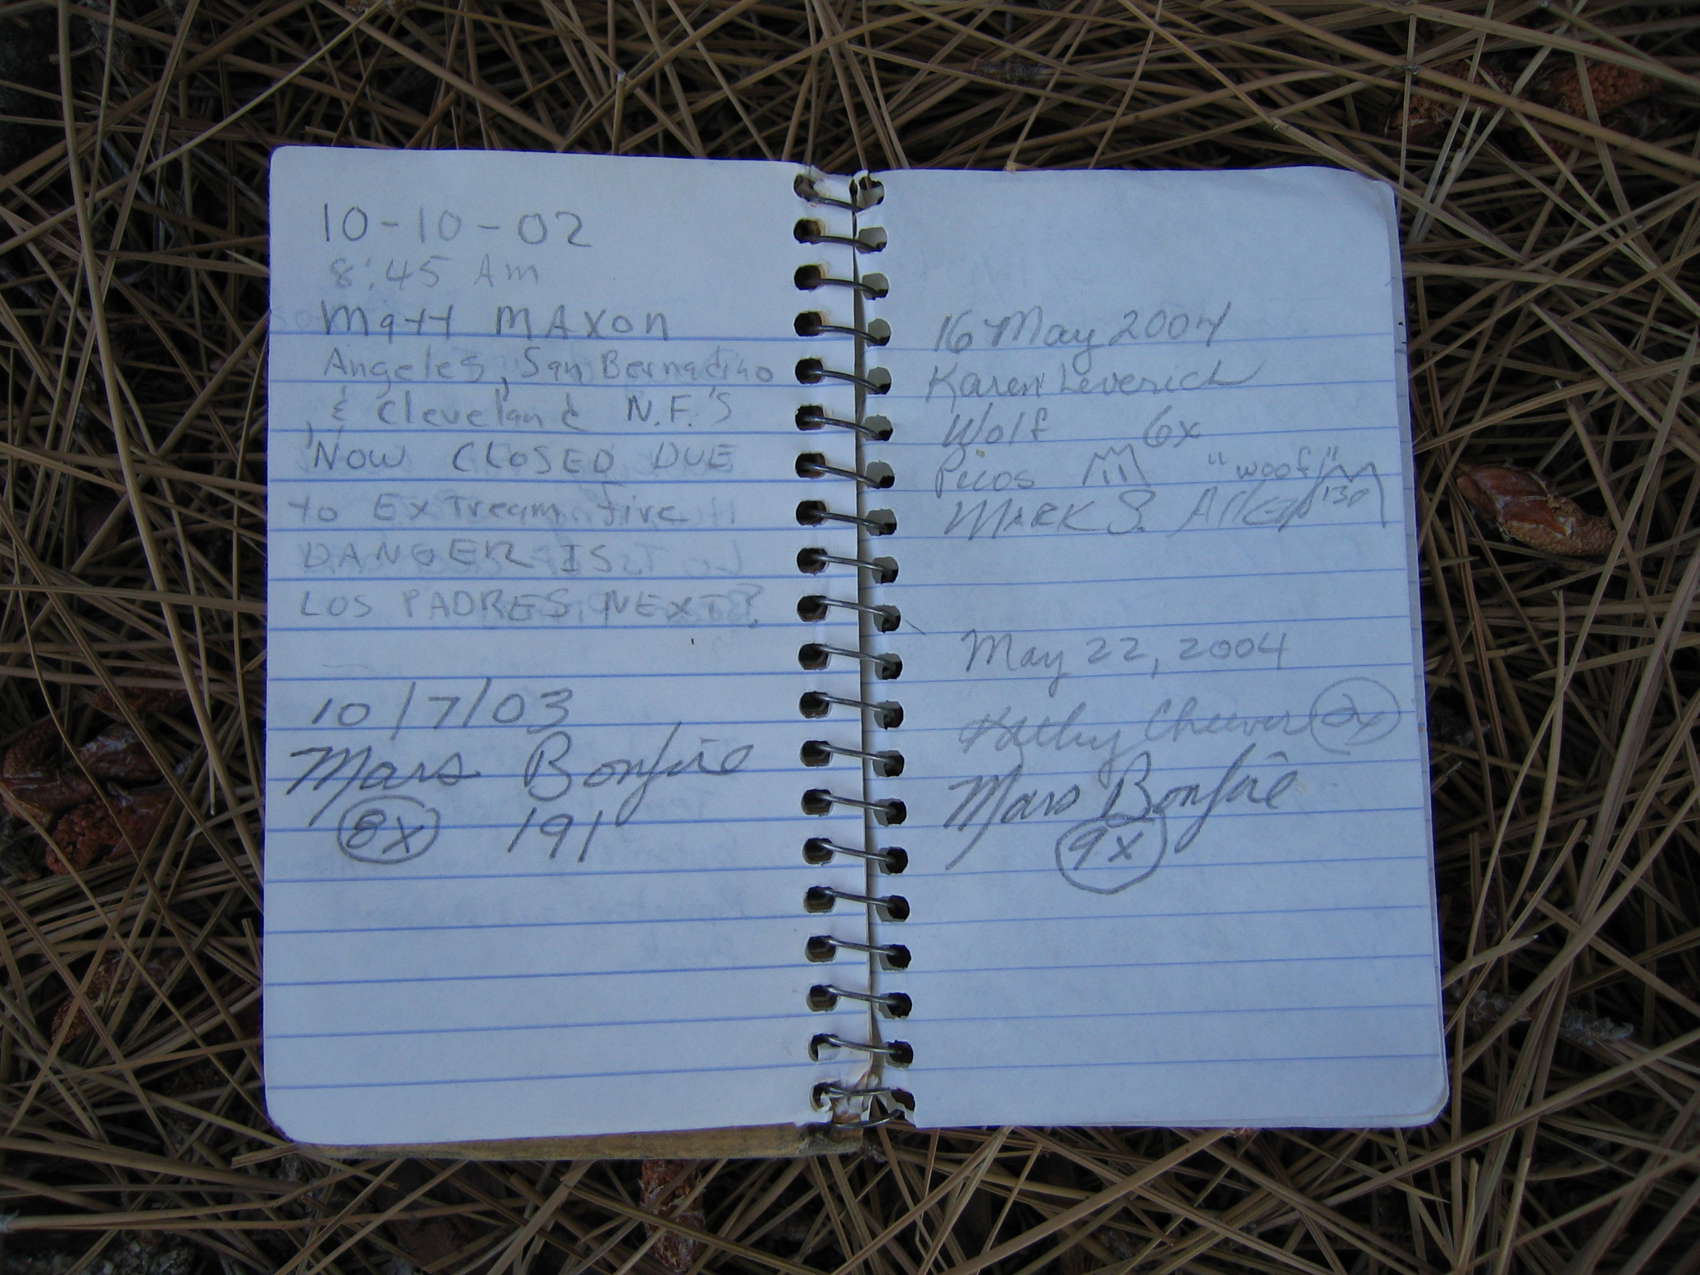 10-10-02
8:45 Am
Matt MAXON
Angeles, San Bernadino
, & Cleveland N.F.'S
NOW CLOSED DUE
to ExTream fire
DANGER IS
LOS PADRES NEXT?
10/7/03
Mars Bonfire
8x 191
16 May 2004
Karen Leverich
Wolf 6x
Picos "woof"
MARK S. Allen
May 22, 2004
Kathy Cheever 2x
Mars Bonfire
9x